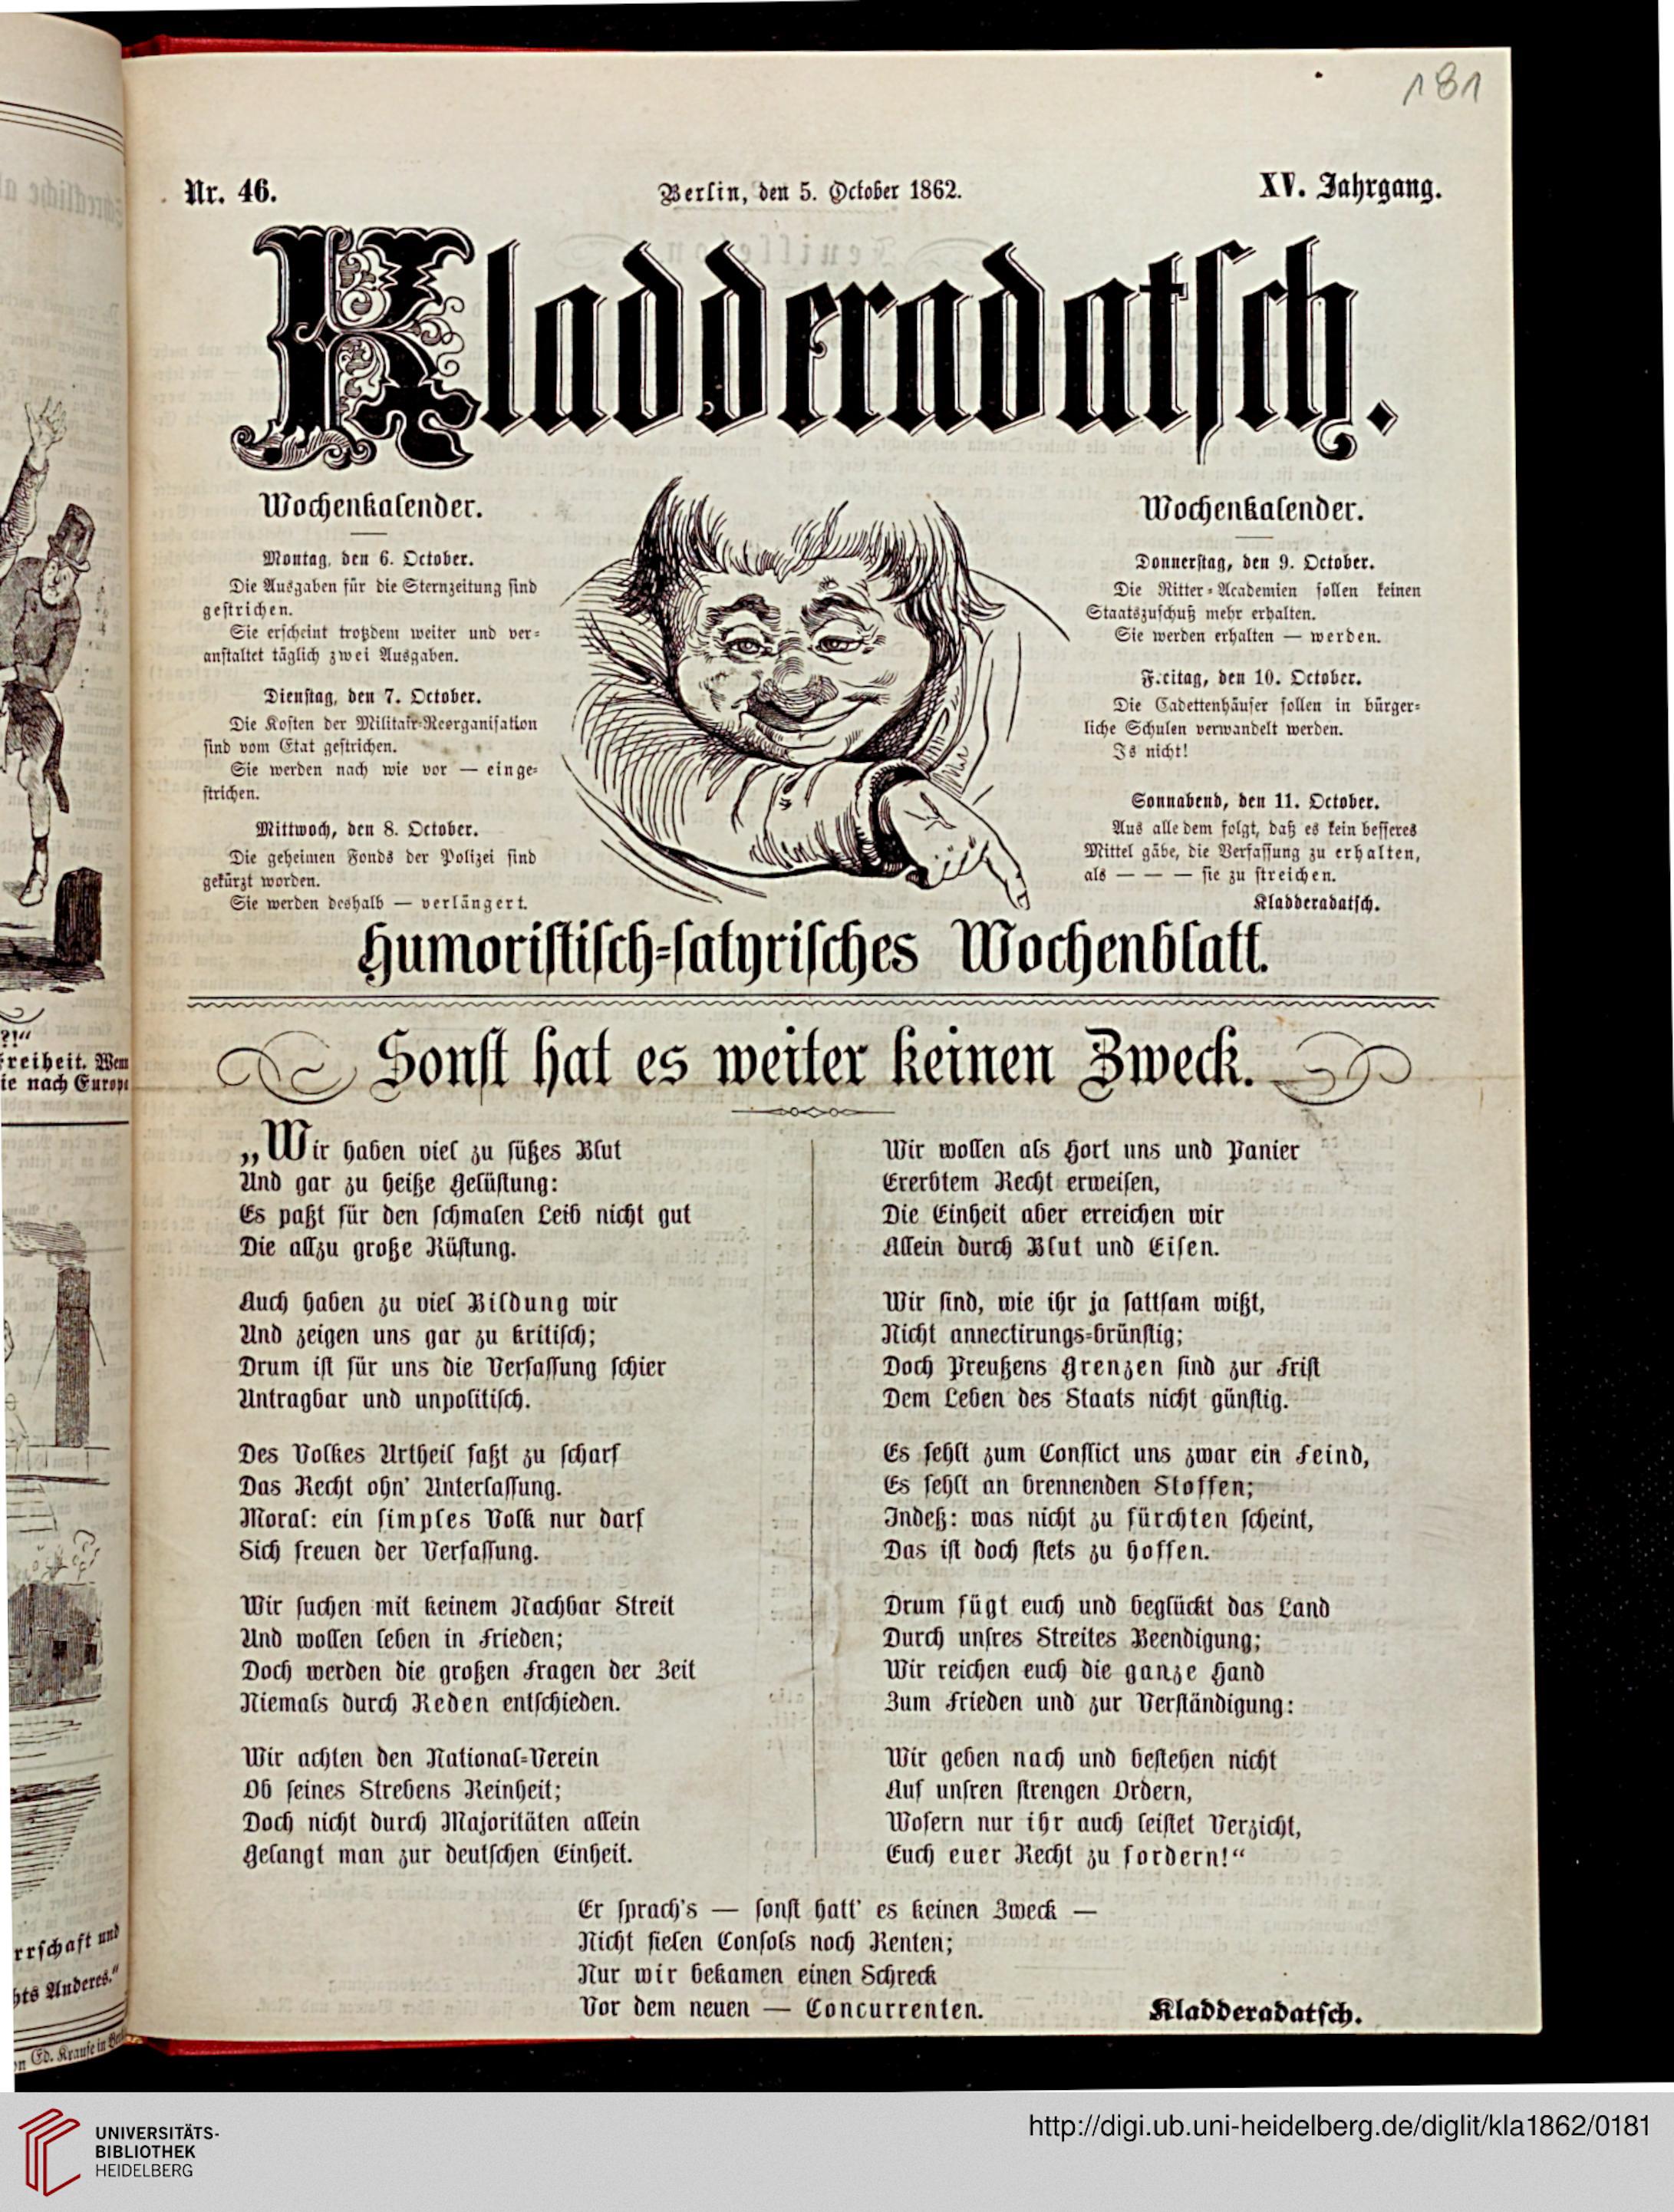 181
Nr. 46.
Berlin, den 5. October 1862.
XV. Jahrgang.
Kladderadatsch.
Wochenkalender.
Montag, den 6. October.
Die Ausgaben für die Sternzeitung sind
gestrichen.
Sie erscheint trotzdem weiter und ver-
anstaltet täglich zwei Ausgaben.
Dienstag, den 7. October.
Die Kosten der Militair-Reorganisation
sind vom Etat gestrichen.
Sie werden nach wie vor — einge-
strichen.
Mittwoch, den 8. October.
Die geheimen Fonds der Polizei sind
gekürzt worden.
Sie werden deshalb — verlängert.
Wochenkalender.
Donnerstag, den 9. October.
Die Ritter-Academien sollen keinen
Staatszuschuß mehr erhalten.
Sie werden erhalten — werden.
Freitag, den 10. October.
Die Cadettenhäuser sollen in bürger-
liche Schulen verwandelt werden.
Is nicht!
Sonnabend, den 11. October.
Aus alle dem folgt, daß es kein besseres
Mittel gäbe, die Verfassung zu erhalten,
als — — — sie zu streichen.
Kladderadatsch.
Humoristisch-satyrisches Wochenblatt.
Sonst hat es weiter keinen Zweck.
„Wir haben viel zu süßes Blut
Und gar zu heiße Gelüstung:
Es paßt für den schmalen Leib nicht gut
Die allzu große Rüstung.
Auch haben zu viel Bildung wir
Und zeigen uns gar zu kritisch;
Drum ist für uns die Verfassung schier
Untragbar und unpolitisch.
Des Volkes Urtheil faßt zu scharf
Das Recht ohn' Unterlassung.
Moral: ein simples Volk nur darf
Sich freuen der Verfassung.
Wir suchen mit keinem Nachbar Streit
Und wollen leben in Frieden;
Doch werden die großen Fragen der Zeit
Niemals durch Reden entschieden.
Wir achten den National-Verein
Ob seines Strebens Reinheit;
Doch nicht durch Majoritäten allein
Gelangt man zur deutschen Einheit.
Wir wollen als Hort uns und Panier
Ererbtem Recht erweisen,
Die Einheit aber erreichen wir
Allein durch Blut und Eisen.
Wir sind, wie ihr ja sattsam wißt,
Nicht annectirungs-brünstig;
Doch Preußens Grenzen sind zur Frist
Dem Leben des Staats nicht günstig.
Es fehlt zum Conflict uns zwar ein Feind,
Es fehlt an brennenden Stoffen;
Indeß: was nicht zu fürchten scheint,
Das ist doch stets zu hoffen.
Drum fügt euch und beglückt das Land
Durch unsres Streites Beendigung;
Wir reichen euch die ganze Hand
Zum Frieden und zur Verständigung:
Wir geben nach und bestehen nicht
Auf unsren strengen Ordern,
Wofern nur ihr auch leistet Verzicht,
Euch euer Recht zu fordern!“
Er sprach's — sonst hatt' es keinen Zweck —
Nicht fielen Consols noch Renten;
Nur wir bekamen einen Schreck
Vor dem neuen — Concurrenten.
Kladderadatsch.
?!“
reiheit. Wenn
ie nach Europa
rrschaft und
hts Anderes.“
n Ed. Krause in
UNIVERSITÄTS-
BIBLIOTHEK
HEIDELBERG
http://digi.ub.uni-heidelberg.de/diglit/kla1862/0181